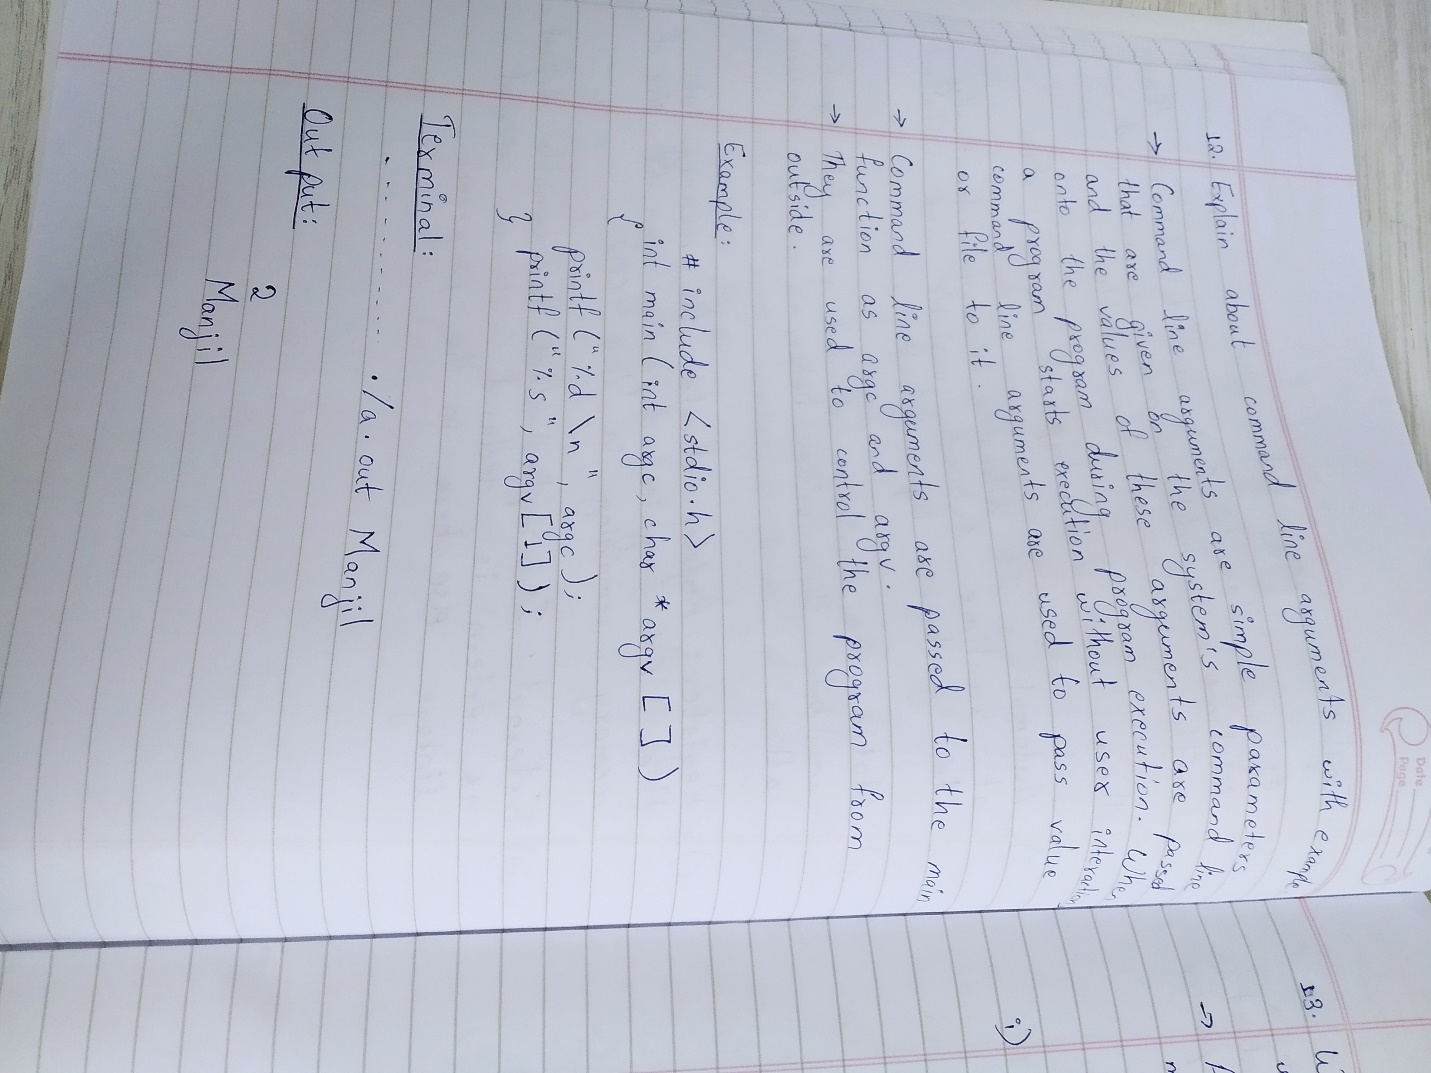 Date
Page
12. Explain about command line arguments with example
→ Command line arguments are simple parameters
that are given on the system's command line
and the values of these arguments are passed
onto the program during program execution. When
a program starts execution without user interaction
command line arguments are used to pass value
or file to it.
→ Command line arguments are passed to the main
function as argc and argv.
→ They are used to control the program from
outside.
Example:
# include <stdio.h>
int main ( int argc, char * argv [ ] )
{
printf ("%d \n", argc );
printf ("%s", argv [1] );
}
Terminal:
. . . . . . . . . . . ./a.out Manjil
Output:
2
Manjil
13.
→
i)